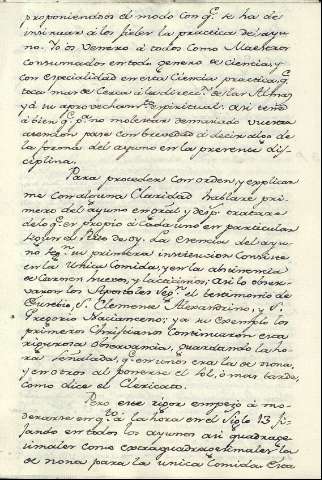 proponiendoos el modo con q.e se ha de
insinuar á los fieles la practica del ayu-
no. Yo os venero á todos como Maestros
consumados en todo genero de Ciencias, y
con especialidad en esta Ciencia practica q.e
toca mas de cerca á la direcc.n de las Almas
y á su aprovecham.to espiritual. Asi tená
á bien q.e p.r no molestar demasiado vuestra
atencion pase con brevedad á deciros algo de
la forma del ayuno en la presente dis-
ciplina.
Para proceder con orden, y explicar
me con alguna Claridad hablaré pri-
mero del ayuno en gral y desp.s tratare
de lo q.e es propio á cada uno en particular
segun el estilo de oy. La esencia del ayu-
no seg.n su primera institucion consiste
en la Unica Comida, y en la abstinencia
de Carnes huevos, y lacticinios; Asi lo obser-
varon los Apostoles seg.n el testimonio de
Eusebio, S. Clemente Alexandrino, y S.
Gregorio Nacianceno; y á su exemplo los
primeros Christianos continuaron esta
rigurosa observancia, guardando la ho-
ra señalada, q.e en unos era la de nona,
y en otros al ponerse el Sol, ó mas tarde,
como dice el Clericato.
Pero este rigor empezó á mo-
derarse en q.to á la hora en el Siglo 13 fi-
jando en todos los ayunos asi quadrage-
simales como extraquadragesimales la
de nona para la unica Comida. Esta